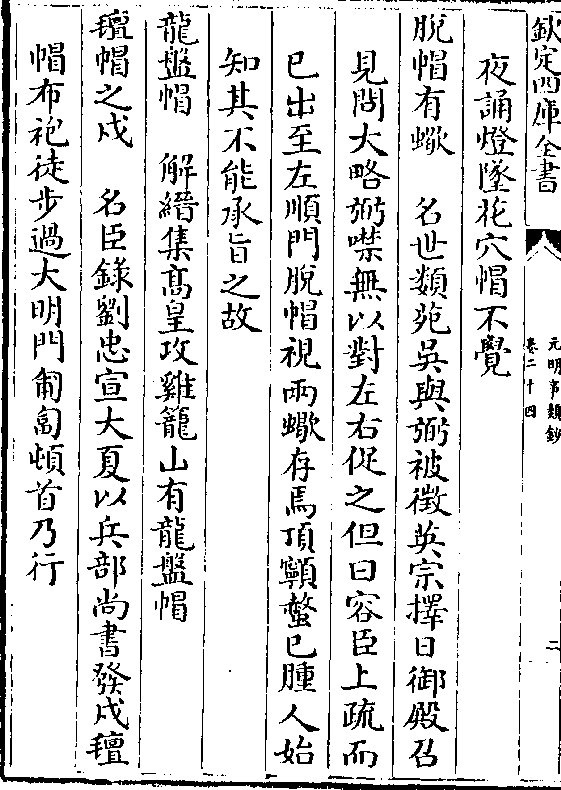 欽定四庫全書
元明事類鈔
卷二十四
二
夜誦燈墜花穴帽不覺
脫帽有蠍　名世類苑吳與弼被徵英宗擇日御殿召
見問大略弼噤無以對左右促之但曰容臣上疏而
已出至左順門脫帽視兩蠍存焉頂顖螫已腫人始
知其不能承旨之故
龍盤帽　解縉集高皇攻雞籠山有龍盤帽
氊帽之戍　名臣錄劉忠宣大夏以兵部尚書發戍氊
帽布袍徒步過大明門匍匐頓首乃行